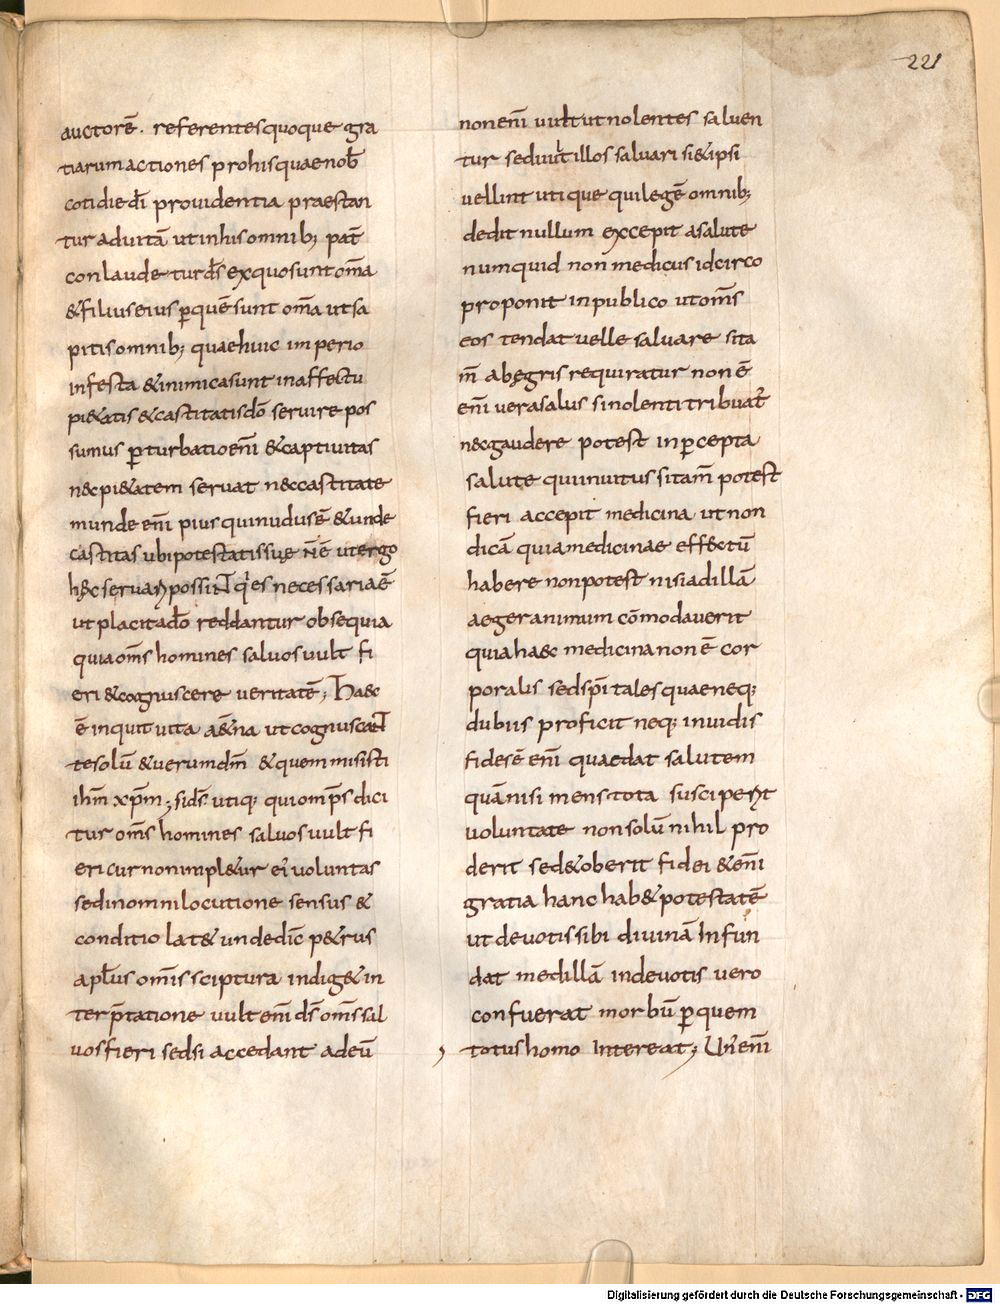 221
auctorē. referentes quoque gra
tiarum actiones pro his quae nob̄
cotidie dī prouidentia praestan
tur ad uitā ut in his omnib; pat̄
conlaudetur d̄s ex quo sunt om̄a
& filius eius ꝑ quē sunt om̄a ut sa
pitis omnib; quae huic imperio
infesta & inimica sunt in affectu
pi&atis & castitatis dō seruire pos
sumus ꝑturbatio enī & captiuitas
nec pi&atem seruat nec castitate
munde enī pius qui nudus ē & unde
castitas ubi potestatis suę n̄ ē ut ergo
hęc seruari possint q'es necessaria ē
ut placita dō reddantur obsequia
quia om̄s homines saluos uult fi
eri & cognuscere ueritatē; Haec
ē inquit uita a&̄na ut cognuscant
te solū & uerum dm̄ & quem misisti
ihm̄ xp̄m; si ds̄ utiq; qui omp̄s dici
tur om̄s homines saluos uult fi
eri cur non impl&ur ei' uoluntas
sed in omni locutione sensus &
conditio lat& unde dic̄ p&rus
apl̄us om̄is sciptura indig& in
terp̄tatione uult enī ds̄ om̄s sal
uos fieri sed si accedant ad eū
non enī uult ut nolentes saluen
tur sed uult illos saluari si & ipsi
uellint utique qui legē omnib;
dedit nullum excepit a salute
numquid non medicus idcirco
proponit in publico ut om̄s
eos tendat uelle saluare si ta
m̄ ab ęgris requiratur non ē
enī uera salus si nolenti tribuat̄
nec gaudere potest in ꝑcepta
salute qui inuitus si tam̄ potest
fieri accepit medicina ut non
dicā quia medicinae effectū
habere non potest nisi ad illā
aeger animum cōmodauerit
quia haec medicina non ē cor
poralis sed sp̄itales quae neq;
dubiis proficit neq; inuidis
fides ē enī quae dat salutem
quā nisi mens tota susciperit
uoluntate non solū nihil pro
derit sed & oberit fidei & enī
gratia hanc hab& potestatē
ut deuotis sibi diuinā infun
dat medillā indeuotis uero
confuerat morbū ꝑ quem
totus homo intereat; Un' enī
Digitalisierung gefördert durch die Deutsche Forschungsgemeinschaft - DFG